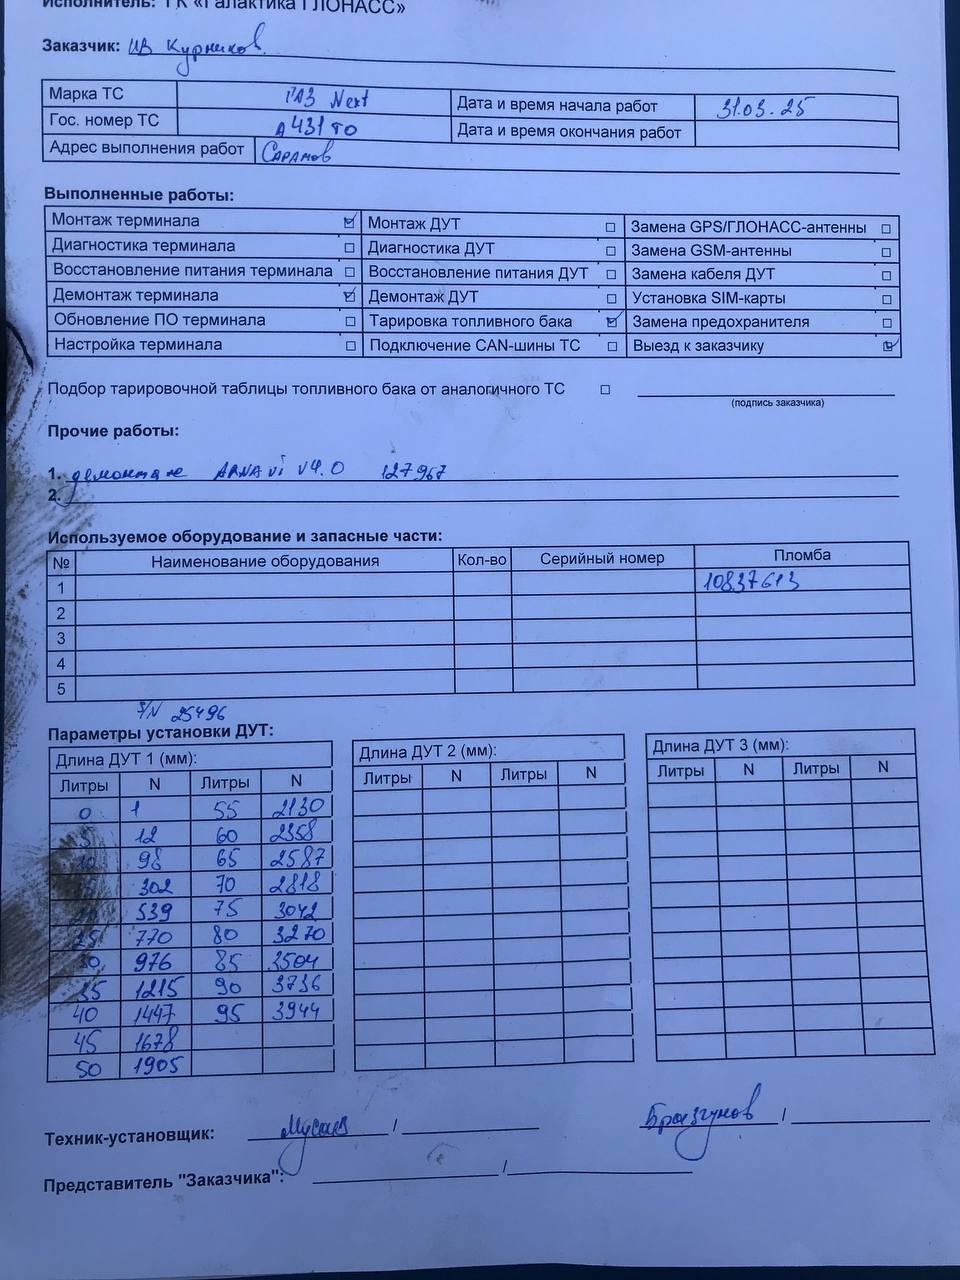 Исполнитель: ГК «Галактика ГЛОНАСС»
Заказчик: ИВ Курников
Марка ТС ГАЗ Next Дата и время начала работ 31.03.25
Гос. номер ТС А431ТО Дата и время окончания работ
Адрес выполнения работ Саратов
Выполненные работы:
Монтаж терминала ☑ Монтаж ДУТ ☐ Замена GPS/ГЛОНАСС-антенны ☐
Диагностика терминала ☐ Диагностика ДУТ ☐ Замена GSM-антенны ☐
Восстановление питания терминала ☐ Восстановление питания ДУТ ☐ Замена кабеля ДУТ ☐
Демонтаж терминала ☑ Демонтаж ДУТ ☐ Установка SIM-карты ☐
Обновление ПО терминала ☐ Тарировка топливного бака ☑ Замена предохранителя ☐
Настройка терминала ☐ Подключение CAN-шины ТС ☐ Выезд к заказчику ☑
Подбор тарировочной таблицы топливного бака от аналогичного ТС ☐
(подпись заказчика)
Прочие работы:
1. демонтаж ARNAVi V4.0 127967
2.
Используемое оборудование и запасные части:
№ Наименование оборудования Кол-во Серийный номер Пломба
1 10837613
2
3
4
5
S/N 25496
Параметры установки ДУТ:
Длина ДУТ 1 (мм): Длина ДУТ 2 (мм): Длина ДУТ 3 (мм):
Литры N Литры N Литры N Литры N Литры N Литры N
0 1 55 2130
5 12 60 2358
10 98 65 2587
302 70 2818
539 75 3042
25 770 80 3270
30 976 85 3504
35 1215 90 3736
40 1447 95 3944
45 1678
50 1905
Техник-установщик: Мусаев / Брызгунов /
Представитель "Заказчика": /